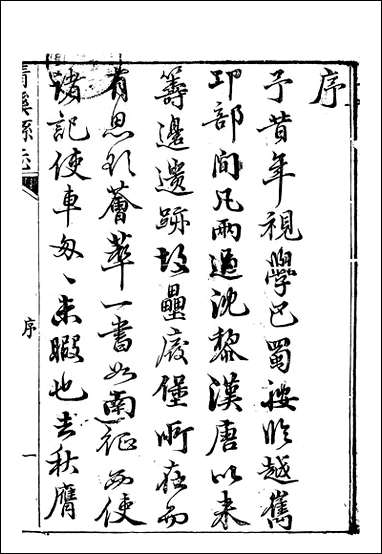 序
予昔年視學巴蜀按臨越嶲
邛部間凡兩過沈黎漢唐以來
籌邊遺跡故壘廢堡所在而
有思欲薈萃一書如南征西使
諸記使車匆〻未暇也去秋膺
清溪縣志
序
一